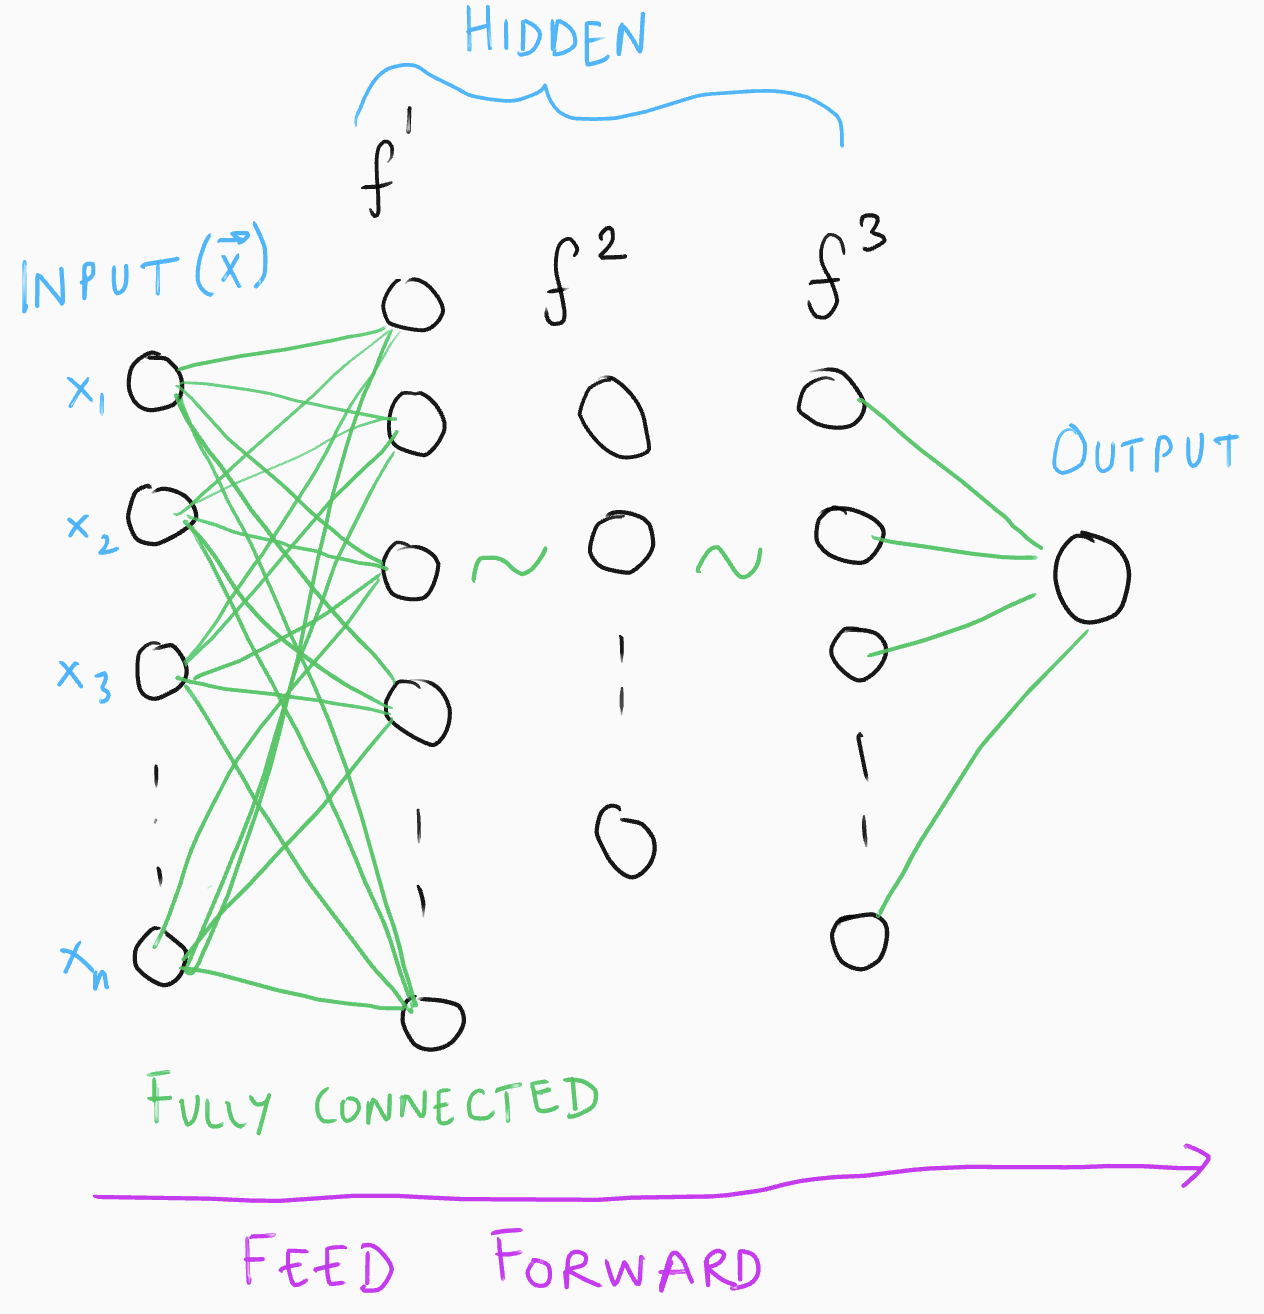 HIDDEN
f¹
f²
f³
INPUT (x⃗)
x₁
x₂
x₃
xₙ
OUTPUT
FULLY CONNECTED
FEED FORWARD